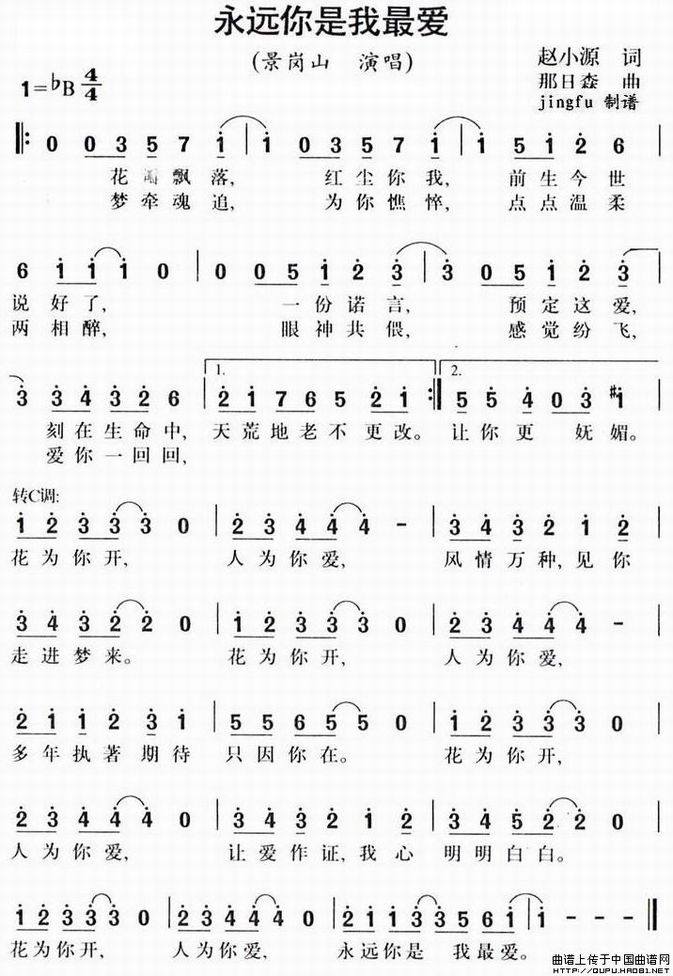 永远你是我最爱
(景岗山 演唱)
赵小源 词
1=♭B 4/4
那日森 曲
jingfu 制谱
0 0 3 5 7 i | i 0 3 5 7 i | i 5 i 2 6
花 飘落, 红尘你我, 前生今世
梦牵魂追, 为你憔悴, 点点温柔
6 i i i 0 | 0 0 5 i 2 3 | 3 0 5 i 2 3
说好了, 一份诺言, 预定这爱,
两相醉, 眼神共偎, 感觉纷飞,
1. 2.
3 3 4 3 2 6 | 2 i 7 6 5 2 i :| 5 5 0 3 #i
刻在生命中, 天荒地老不更改。 让你更妩媚。
爱你一回回,
转C调:
i 2 3 3 3 0 | 2 3 4 4 4 - | 3 4 3 2 i 2
花为你开, 人为你爱, 风情万种,见你
3 4 3 2 2 0 | i 2 3 3 3 0 | 2 3 4 4 4 -
走进梦来。 花为你开, 人为你爱,
2 i i 2 3 i | 5 5 6 5 5 0 | i 2 3 3 3 0
多年执著期待 只因你在。 花为你开,
2 3 4 4 4 0 | 3 4 3 2 i 2 | 3 4 5 2 2 0
人为你爱, 让爱作证,我心 明明白白。
i 2 3 3 3 0 | 2 3 4 4 4 0 | 2 i i 3 3 5 6 i | i - - - ‖
花为你开, 人为你爱, 永远你是 我最爱。
曲谱上传于中国曲谱网
HTTP://QUPU.HAO81.NET